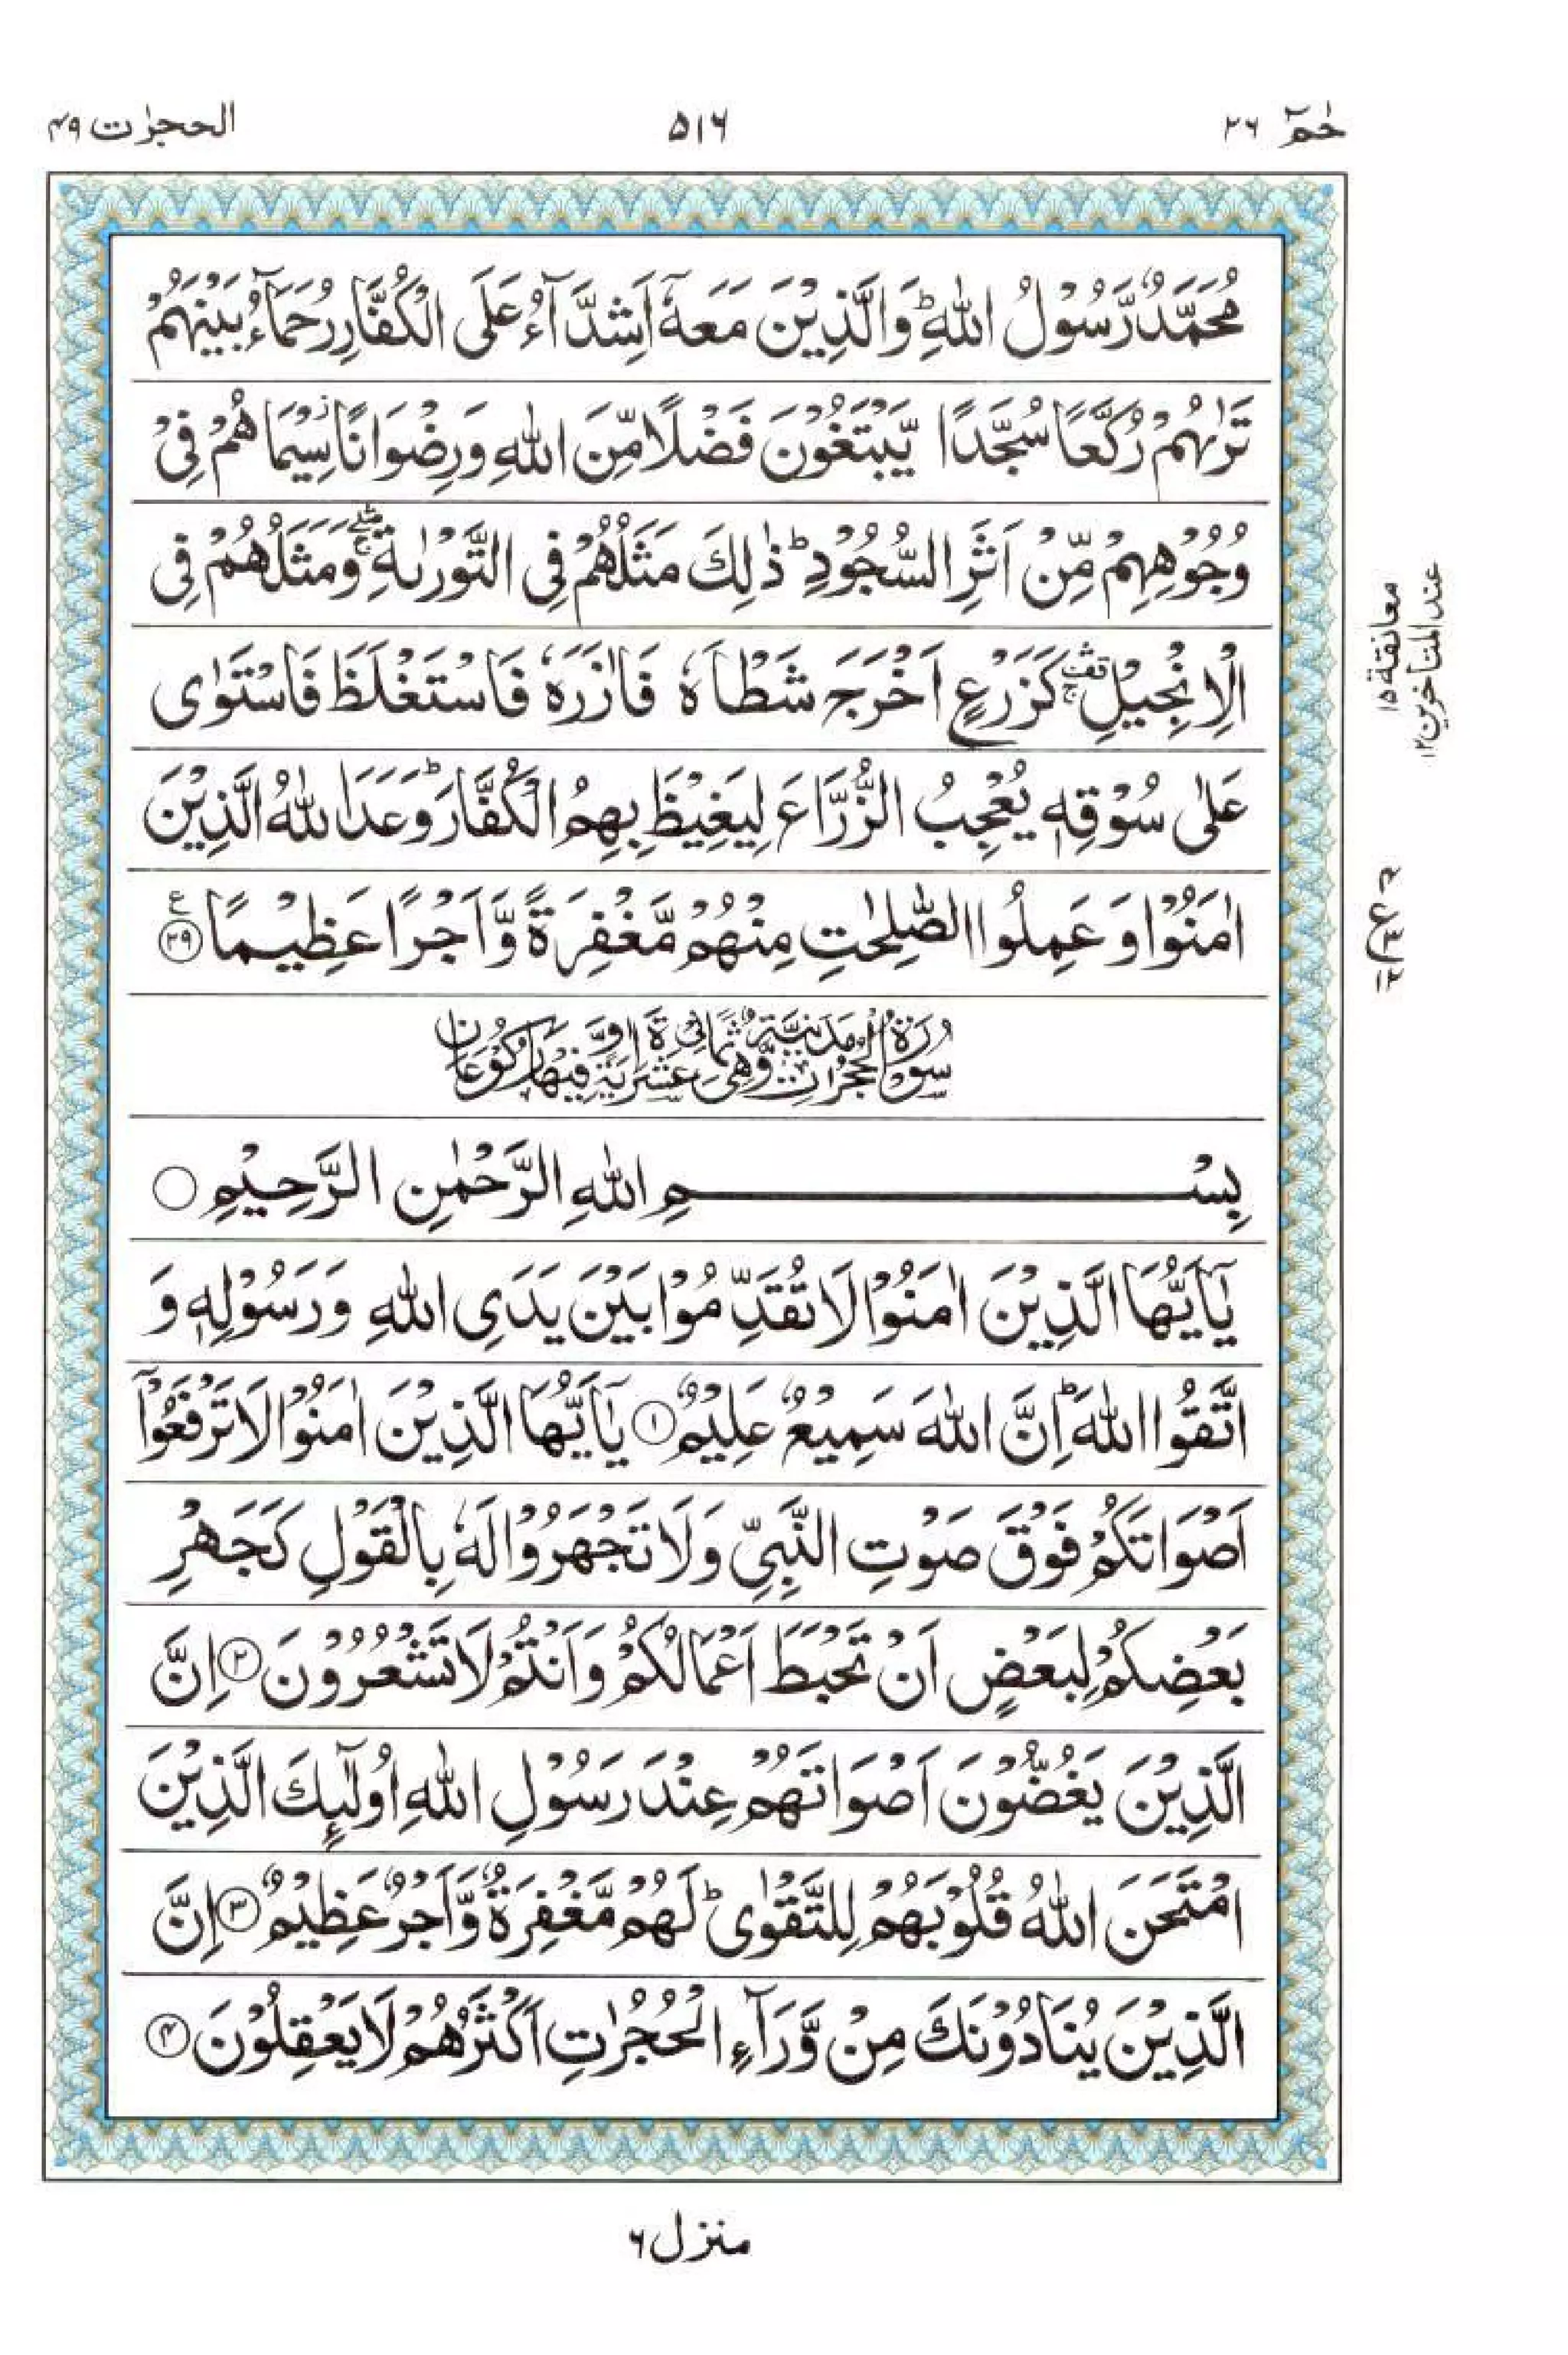 حٰمٓ ٢٦
٥١٦
الحجرٰت ٤٩
مُحَمَّدٌ رَّسُوْلُ اللّٰهِ ؕ وَالَّذِيْنَ مَعَهٗۤ اَشِدَّآءُ عَلَى الْكُفَّارِ رُحَمَآءُ بَيْنَهُمْ
تَرٰىهُمْ رُكَّعًا سُجَّدًا يَّبْتَغُوْنَ فَضْلًا مِّنَ اللّٰهِ وَرِضْوَانًا ؗ سِيْمَاهُمْ فِيْ
وُجُوْهِهِمْ مِّنْ اَثَرِ السُّجُوْدِ ؕ ذٰلِكَ مَثَلُهُمْ فِي التَّوْرٰىةِ ۛۖۚ وَمَثَلُهُمْ فِي
الْاِنْجِيْلِ ۛۚ كَزَرْعٍ اَخْرَجَ شَطْـَٔهٗ فَاٰزَرَهٗ فَاسْتَغْلَظَ فَاسْتَوٰى
عَلٰى سُوْقِهٖ يُعْجِبُ الزُّرَّاعَ لِيَغِيْظَ بِهِمُ الْكُفَّارَ ؕ وَعَدَ اللّٰهُ الَّذِيْنَ
اٰمَنُوْا وَعَمِلُوا الصّٰلِحٰتِ مِنْهُمْ مَّغْفِرَةً وَّاَجْرًا عَظِيْمًا ﴿٢٩﴾ ع
سُوْرَةُ الْحُجُرَاتِ مَدَنِيَّةٌ وَّهِيَ ثَمَانِيَ عَشْرَةَ اٰيَةً وَّفِيْهَا رُكُوْعَانِ
بِسْمِ اللّٰهِ الرَّحْمٰنِ الرَّحِيْمِ ○
يٰۤاَيُّهَا الَّذِيْنَ اٰمَنُوْا لَا تُقَدِّمُوْا بَيْنَ يَدَيِ اللّٰهِ وَرَسُوْلِهٖ وَ
اتَّقُوا اللّٰهَ ؕ اِنَّ اللّٰهَ سَمِيْعٌ عَلِيْمٌ ﴿١﴾ يٰۤاَيُّهَا الَّذِيْنَ اٰمَنُوْا لَا تَرْفَعُوْۤا
اَصْوَاتَكُمْ فَوْقَ صَوْتِ النَّبِيِّ وَلَا تَجْهَرُوْا لَهٗ بِالْقَوْلِ كَجَهْرِ
بَعْضِكُمْ لِبَعْضٍ اَنْ تَحْبَطَ اَعْمَالُكُمْ وَاَنْتُمْ لَا تَشْعُرُوْنَ ﴿٢﴾ اِنَّ
الَّذِيْنَ يَغُضُّوْنَ اَصْوَاتَهُمْ عِنْدَ رَسُوْلِ اللّٰهِ اُولٰٓئِكَ الَّذِيْنَ
امْتَحَنَ اللّٰهُ قُلُوْبَهُمْ لِلتَّقْوٰى ؕ لَهُمْ مَّغْفِرَةٌ وَّاَجْرٌ عَظِيْمٌ ﴿٣﴾ اِنَّ
الَّذِيْنَ يُنَادُوْنَكَ مِنْ وَّرَآءِ الْحُجُرٰتِ اَكْثَرُهُمْ لَا يَعْقِلُوْنَ ﴿٤﴾
معانقة ١٥
عند المتاخرين ١٢
منزل ٦